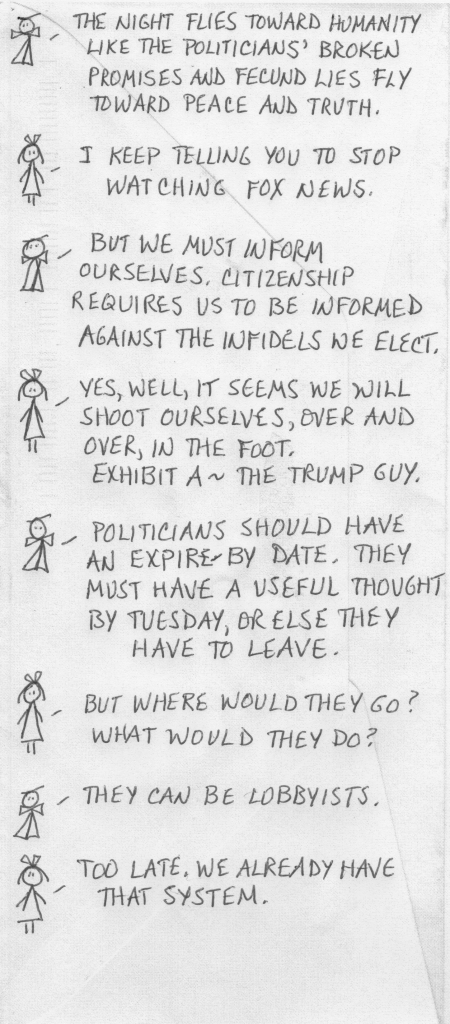 THE NIGHT FLIES TOWARD HUMANITY
LIKE THE POLITICIANS' BROKEN
PROMISES AND FECUND LIES FLY
TOWARD PEACE AND TRUTH.
I KEEP TELLING YOU TO STOP
WATCHING FOX NEWS.
BUT WE MUST INFORM
OURSELVES. CITIZENSHIP
REQUIRES US TO BE INFORMED
AGAINST THE INFIDELS WE ELECT.
YES, WELL, IT SEEMS WE WILL
SHOOT OURSELVES, OVER AND
OVER, IN THE FOOT.
EXHIBIT A ~ THE TRUMP GUY.
POLITICIANS SHOULD HAVE
AN EXPIRE-BY DATE. THEY
MUST HAVE A USEFUL THOUGHT
BY TUESDAY, OR ELSE THEY
HAVE TO LEAVE.
BUT WHERE WOULD THEY GO?
WHAT WOULD THEY DO?
THEY CAN BE LOBBYISTS.
TOO LATE. WE ALREADY HAVE
THAT SYSTEM.